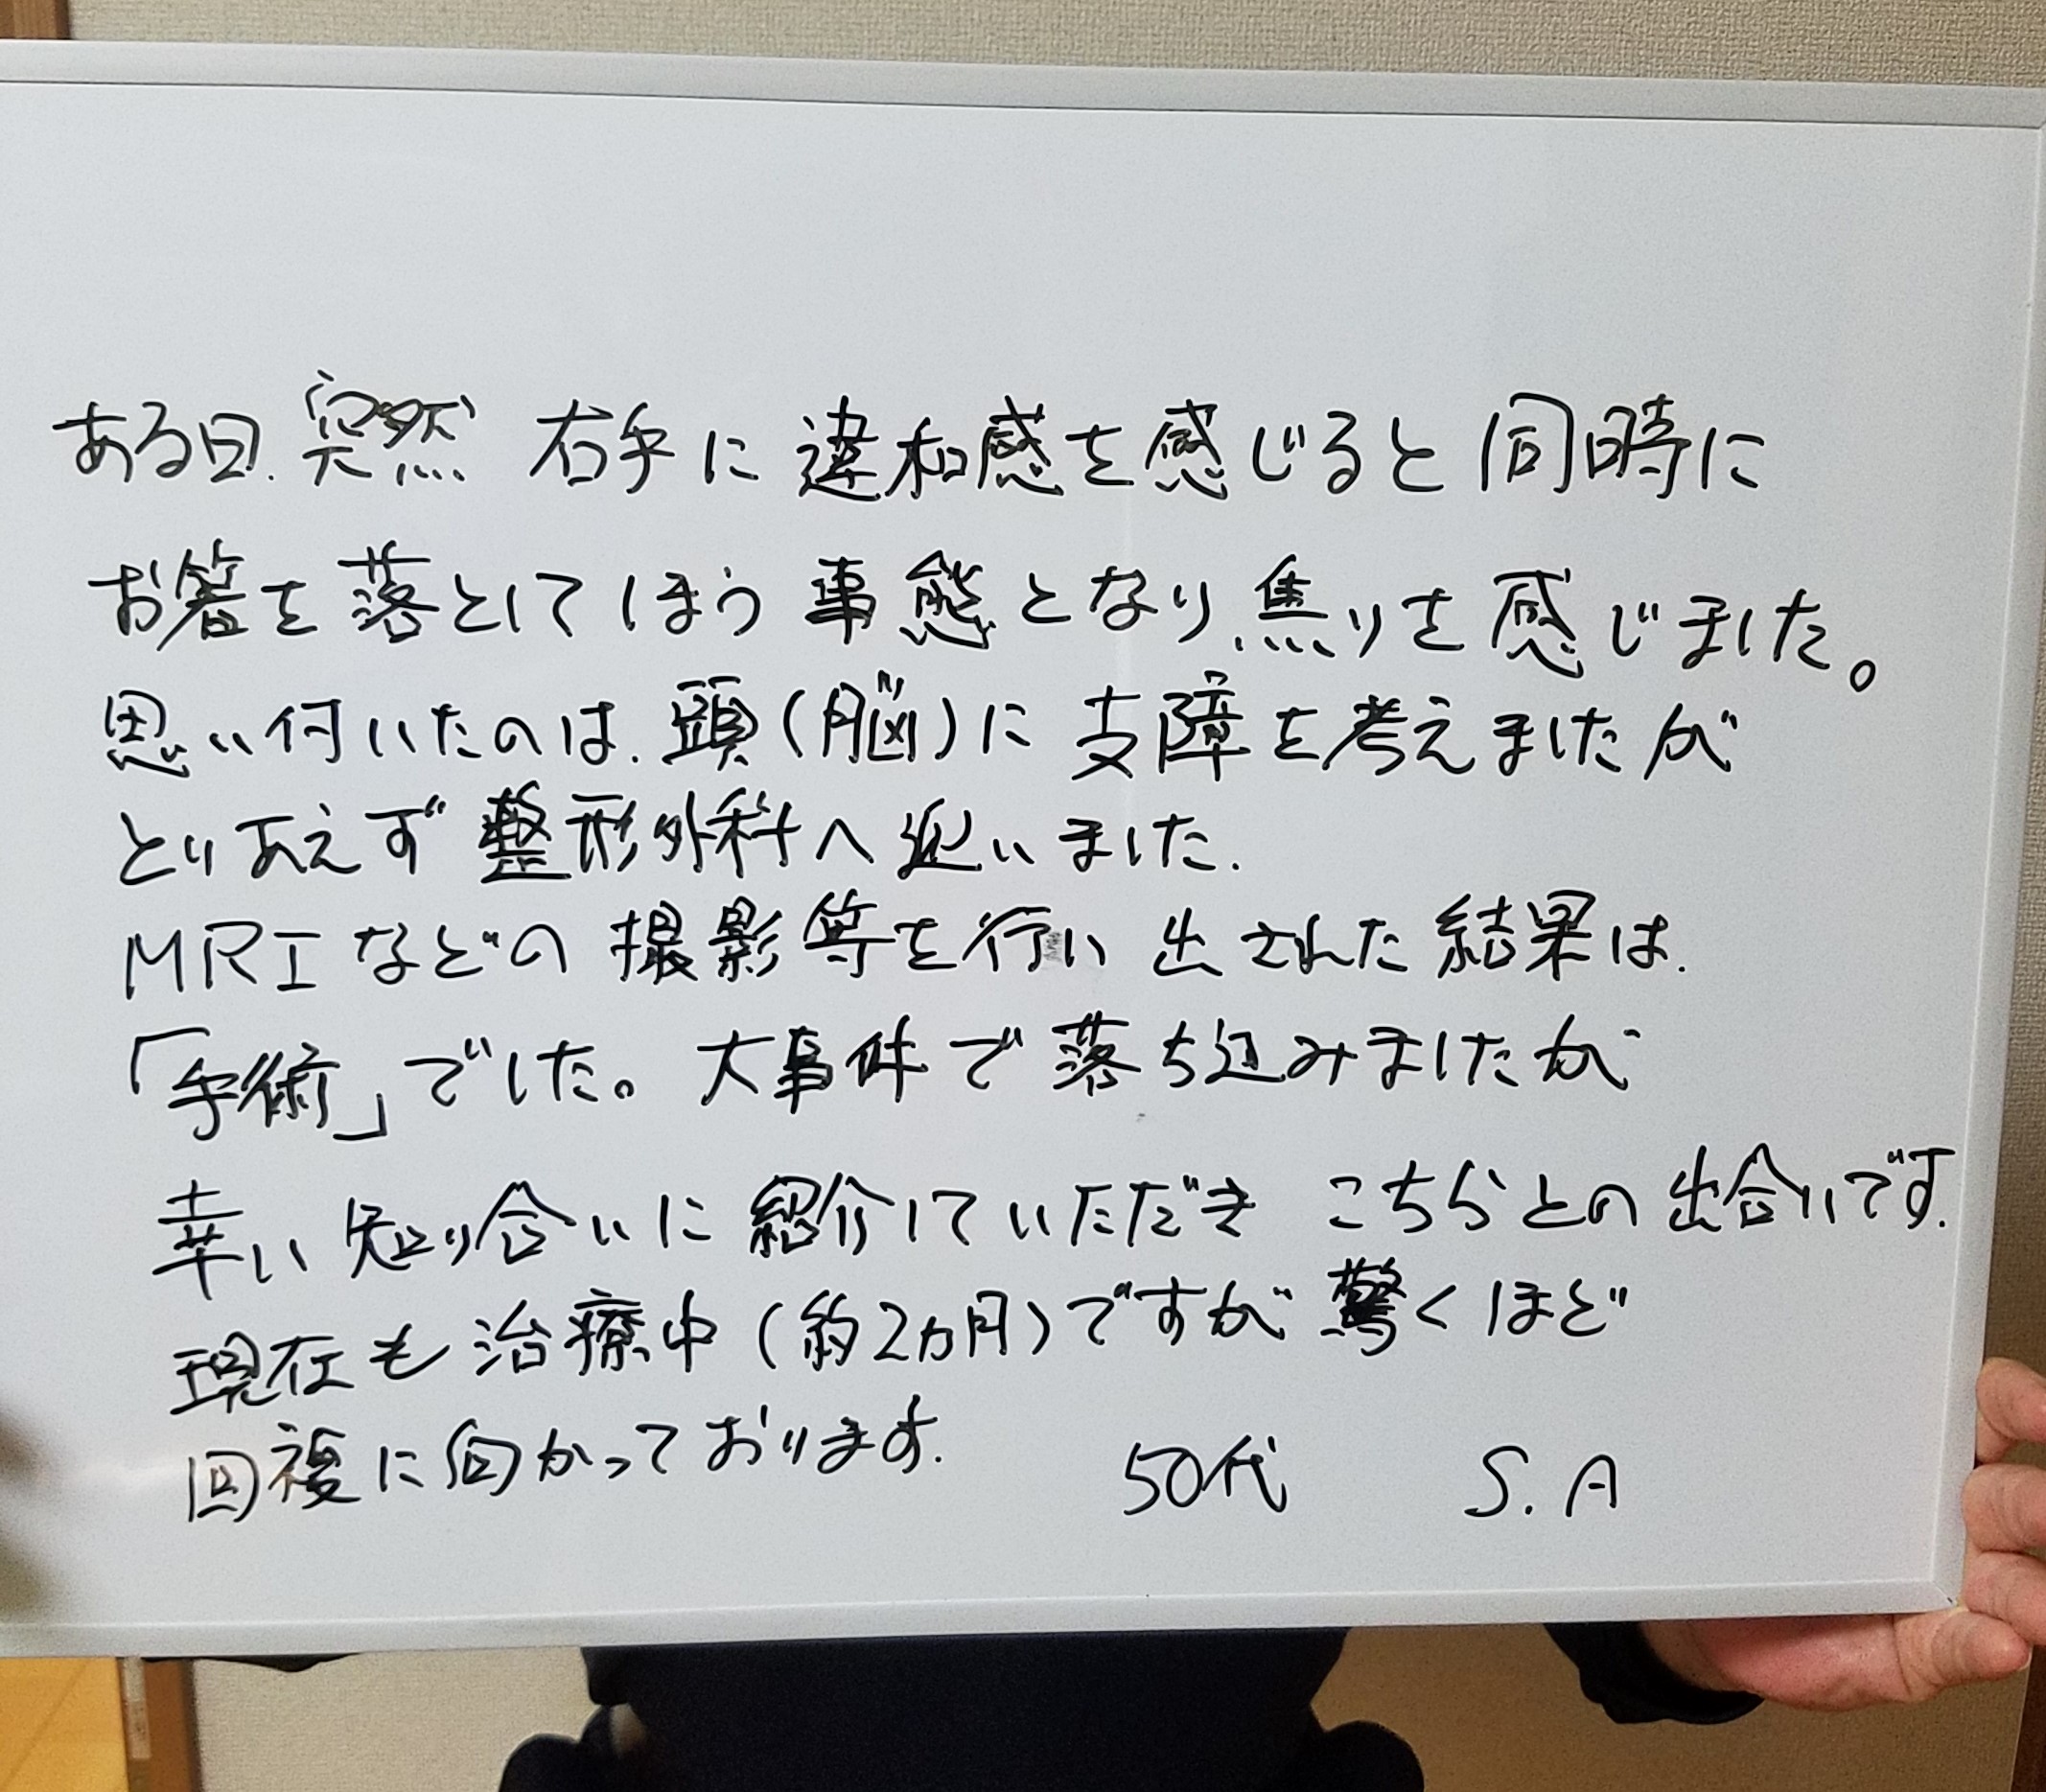 ある日、突然 右手に違和感を感じると同時に
お箸を落としてしまう事態となり、焦りを感じました。
思い付いたのは、頭(脳)に支障を考えましたが
とりあえず整形外科へ
MRIなどの撮影等を行い出された結果は、
「手術」でした。大事件で落ち込みましたが
幸い知り合いに紹介していただき こちらとの出合いです.
現在も治療中(約2カ月)ですが驚くほど
回複に向かっております.
50代 S.A